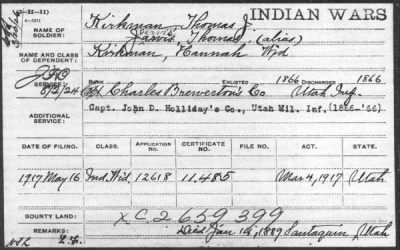 INDIAN WARS
NAME OF SOLDIER: Kirkman, Thomas J
Jarvis, Thomas, (alias)
NAME AND CLASS OF DEPENDENT: Kirkman, Hannah Wid
ENLISTED 1866 DISCHARGED 1866
SERVICE: Capt Charles Brewerton's Co Utah Inf.
8/2/24
Capt. John D. Holliday's Co., Utah Mil. Inf. (1866-'66)
ADDITIONAL SERVICE:
DATE OF FILING. CLASS. APPLICATION NO. CERTIFICATE NO. FILE NO. ACT. STATE.
1917 May 16 Ind. Wid. 12618 11.485 Mar 4, 1917 Utah
BOUNTY LAND:
XC 2 659 399
REMARKS: Died Jan 14, 1889 Santaquin, Utah